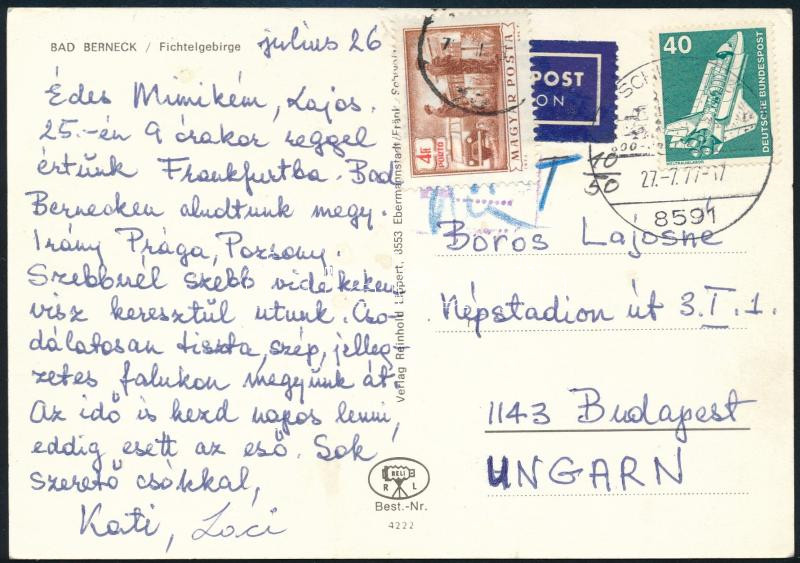 BAD BERNECK / Fichtelgebirge
július 26
Édes Mimikém, Lajos.
25.-én 9 órakor reggel
értünk Frankfurtba. Bad
Bernecken aludtunk megy.
Irány Prága, Pozsony.
Szebbnél szebb vidékeken
visz keresztül utunk. Cso-
dálatosan tiszta, szép, jelleg-
zetes falukon megyünk át
Az idő is kezd napos lenni,
eddig esett az eső. Sok
szerető csókkal,
Kati, Laci
Verlag Reinhold Lippert, 8553 Ebermannstadt/Fränk.
RELI
R L
Best.-Nr.
4222
4 Ft
PORTÓ
MAGYAR POSTA
POST
ON
40
DEUTSCHE BUNDESPOST
T
10
50
27.-7.77-17
8591
Boros Lajosné
Népstadion út 3.I.1.
1143 Budapest
UNGARN